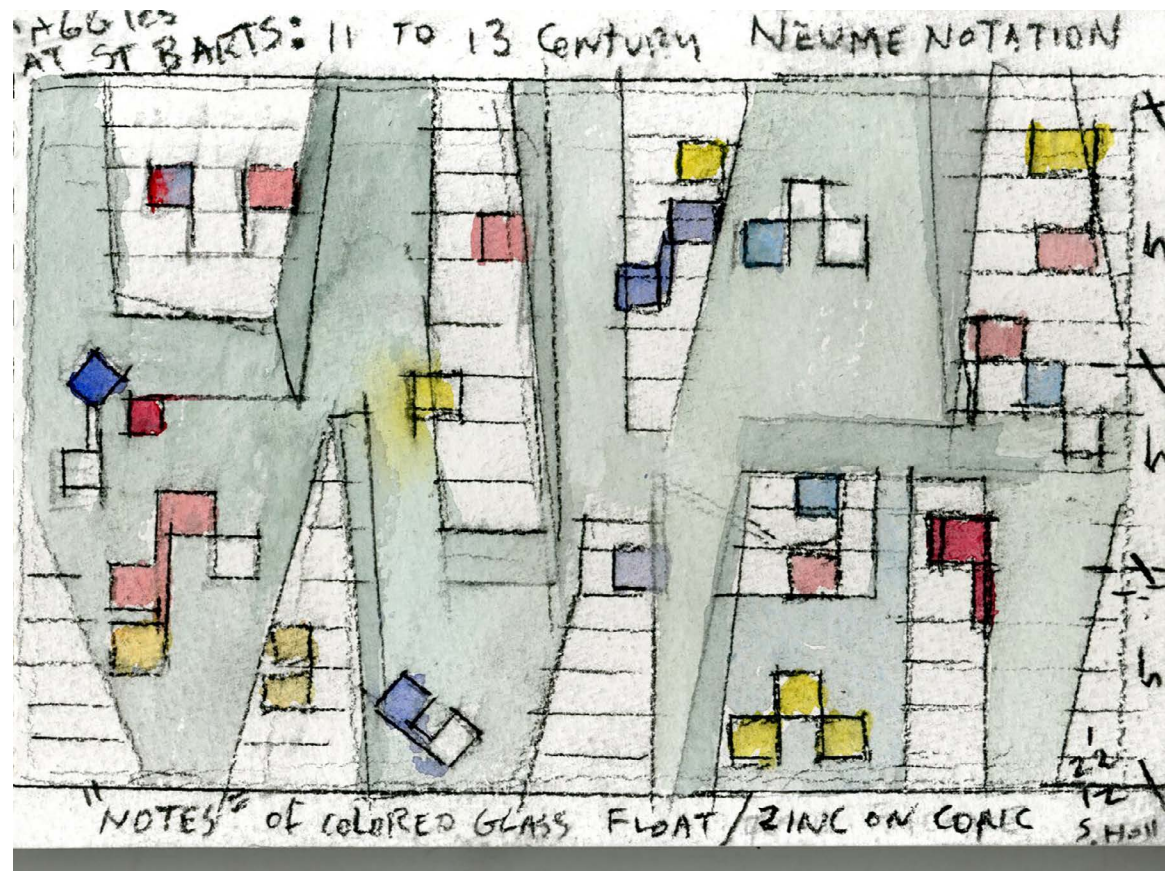 AT ST BARTS: 11 TO 13 CENTURY NEUME NOTATION
"NOTES" OF COLORED GLASS FLOAT / ZINC ON CONC
1
22
12
S. Holl